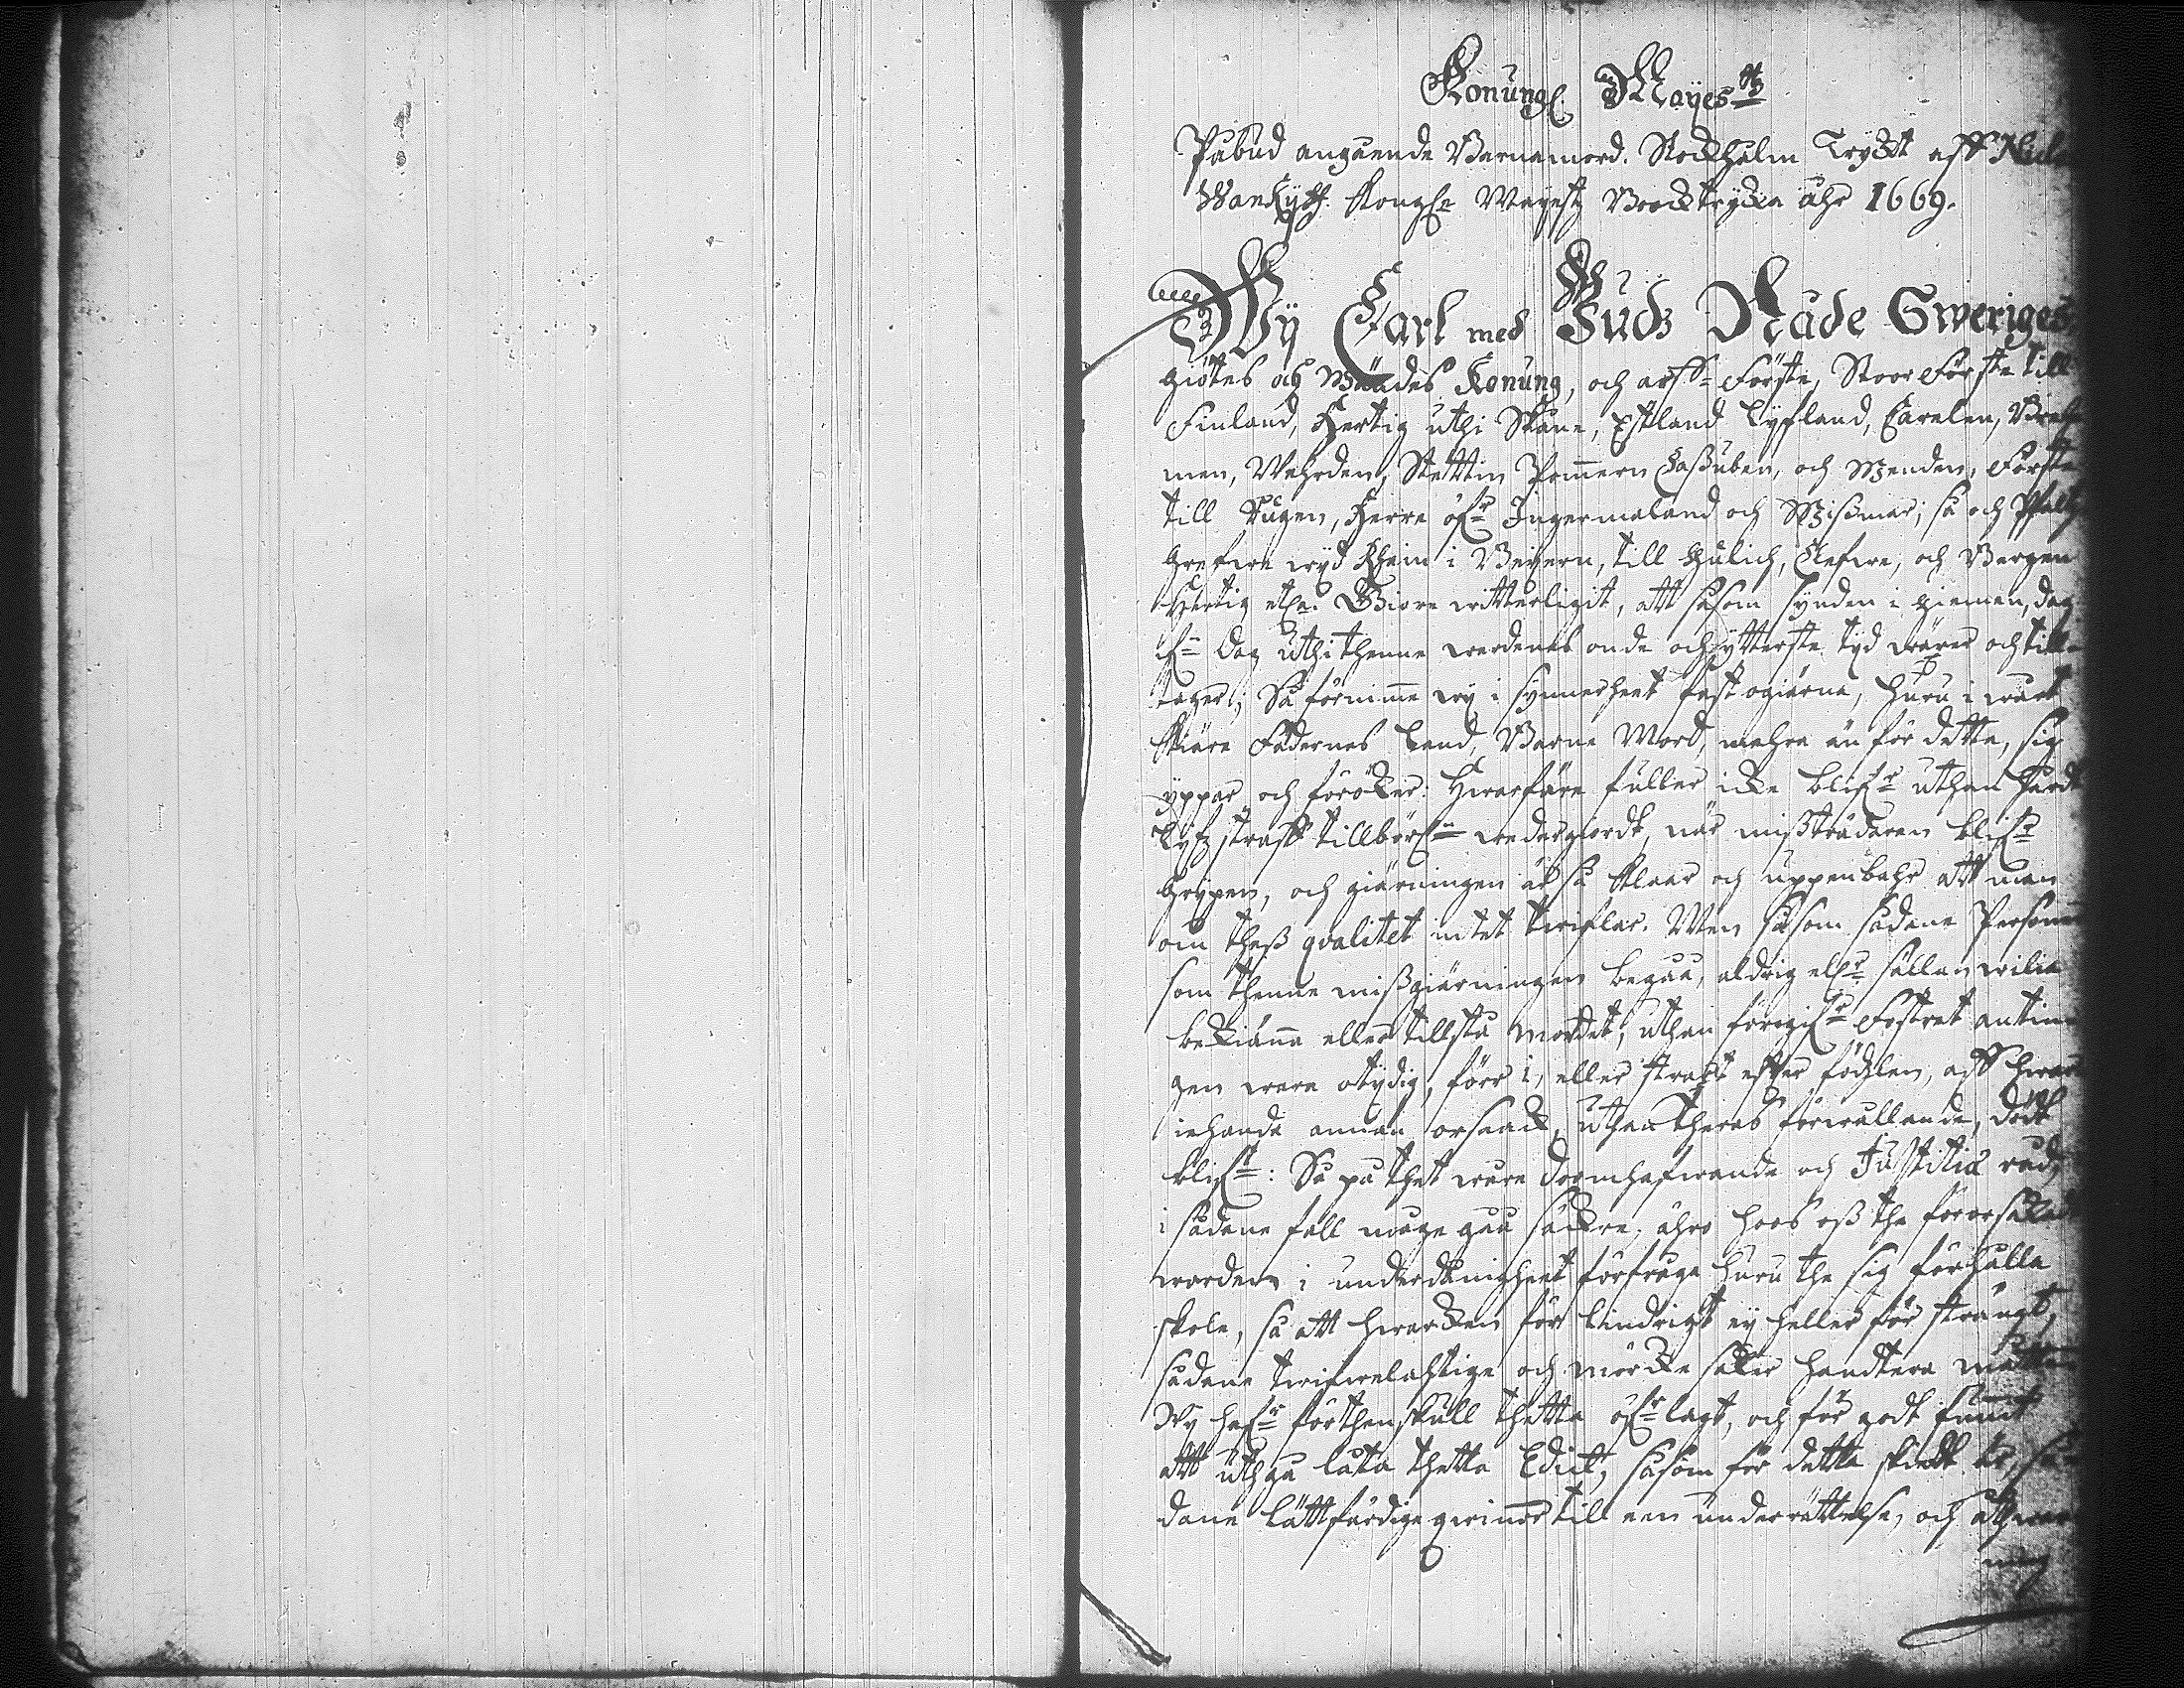 Konungl. Mayestz
Påbud angående Barnamord. Stockholm Tryckt aff Nicla
Wankijff. Kongl. Mayestz Booktryckia åhr 1669.
Wij Carl med Gudz Nåde Sweriges
Giötes och Wändes Konung, och arff-Förste, Stoor Förste till
Finland, Hertig uthi Skåne, Estland Lyfland, Carelen, Bre-
men, Wehrden, Stettin Pomern Caßuben, och Wenden, Förste
till Rügen, Herre öfr Ingermaland och Wißmar; så och Pfaltz
Grefwe wyd Rhein i Beyern, till Gülich, Clefwe, och Bergen
Hertig etc. Giöre witterligit, att såsom synden i giemen, dag
ifn Dag uthi thenne werdenes onde och ytterste tyd wäxer och till-
tager; Så förnimme wy i synnerheet fast ogiärna, huru i wårt
kiäre Fädernes Land, Barne Mord, mehra än för detta, sig
yppar och föröker: Hwarföre fuller icke blifr uthan hårdt
Lyfz straff tillbörln wedergiordt, när mißdådaren blifr
Grypen, och giärningen är så klaar och uppenbahr att man
om theß qvalitet intet twiflar. Men såsom sådane Personer
som thenne mißgiärningen begåå, aldrig elr sällan wilia
bekiänna eller tillstå mordet, uthan föregifr Fostret antin-
gen ware otydig, förr i, eller straxt efter födzlen, aff hwar
iehanda annan orsaak, uthan theras förwållande, dödt
blifr: Så på thet wåre Doomhafwande och Justitiæ råd,
i sådane fall måge gåå säkre, ähre hoos oß the förorsakade
worden i underdånigheet förfråga huru the sig förhålla
skole, så att hwarken för lindrigt ey heller för strängt,
sådane twifwelachtige och mörcke saker handtera måtte.
Wy hafr förthenskull thetta öfrlagt, och för godt funnit
att uthgå låta thetta Edict, såsom för detta skiedt är, så-
dane lättfärdige qwinnor till een underrättelse, och åthwar-
ning